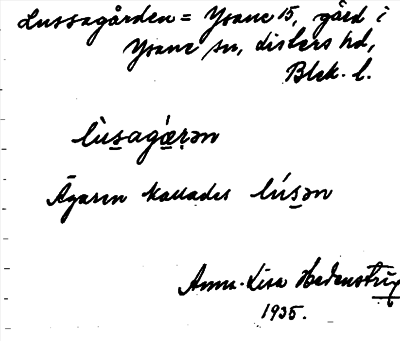 Lussagården = Ysane 15, gård i
Ysane sn, Listers hd,
Blek. l.
lùsagǽrən
Ägaren kallades lúsən
Anna-Lisa Hedenstri
1935.